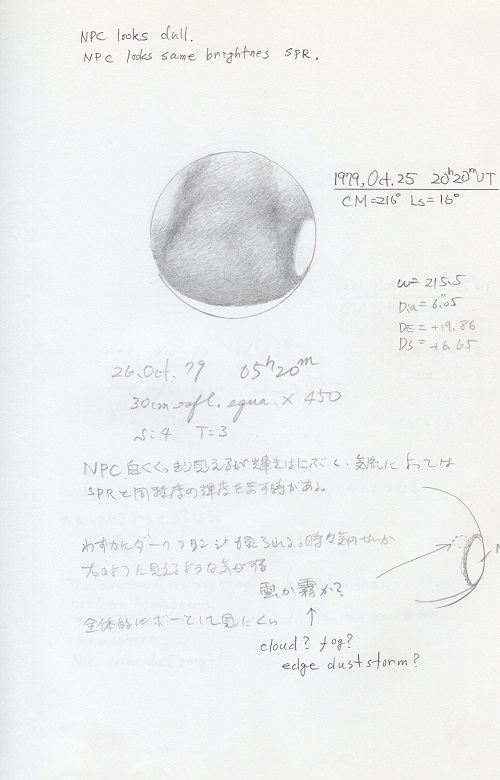 NPC looks dull.
NPC looks same brightnes SPR.
1979, Oct. 25 20h20m UT
CM=216° Ls=16°
ω=215.5
Dia=6".05
DE=+19.86
DS=+6.65
26. Oct. 79 05h20m
30cm refl. equa. × 450
S=4 T=3
NPC 白くくっきり見えるが輝きはにぶく、気流によっては
SPRと同程度の輝度を示す時がある。
わずかにダークフランジも見られる。時々気のせいか
右のように見えるような気がする
雲か霧か?
全体的にボーとして見にくい
cloud? fog?
edge duststorm?
N